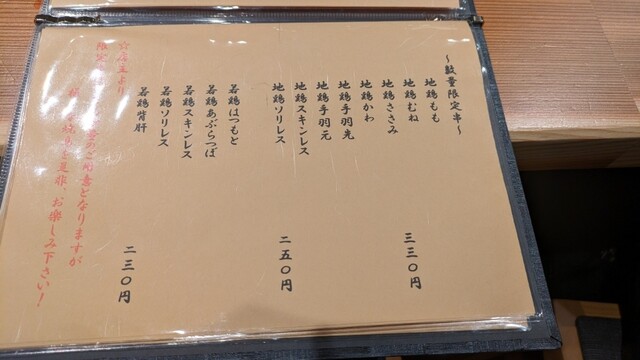 ～数量限定串～
地鶏もも
地鶏むね
地鶏ささみ
三三〇円
地鶏かわ
地鶏手羽先
地鶏手羽元
地鶏スキンレス
地鶏ソリレス
二五〇円
若鶏はつもと
若鶏あぶらつぼ
若鶏スキンレス
若鶏ソリレス
若鶏背肝
二三〇円
☆店主より
限定 のご用意となりますが
是非、お楽しみ下さい！